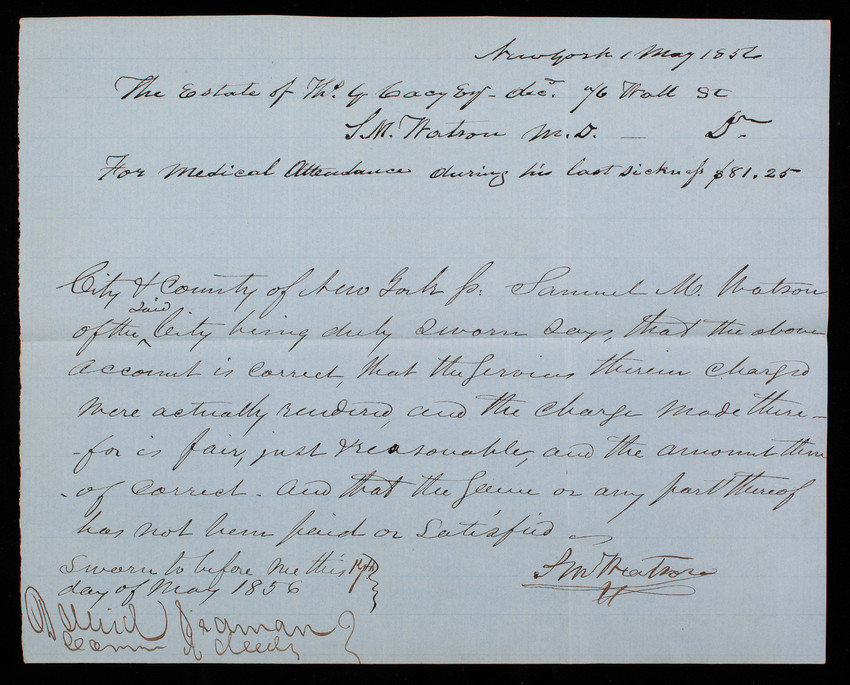 New York 1 May 1856
The Estate of Ths. G Cary Esq - decd. 96 Wall St
S.M. Watson M.D. — Dr.
For Medical Attendance during his last sickness $81.25
City & County of New York ss: Samuel M. Watson
of the said City being duly sworn says, that the above
account is correct, that the services therein charged
were actually rendered, and the charge made there-
-for is fair, just & reasonable, and the amount there
-of correct - and that the same or any part thereof
has not been paid or satisfied
Sworn to before me this 19th
day of May 1856
S M Watson
David Seaman
Comm of deeds